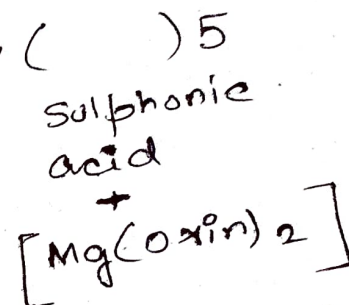 ( ) 5
Sulphonic
acid
+
[Mg(Oxin)2]